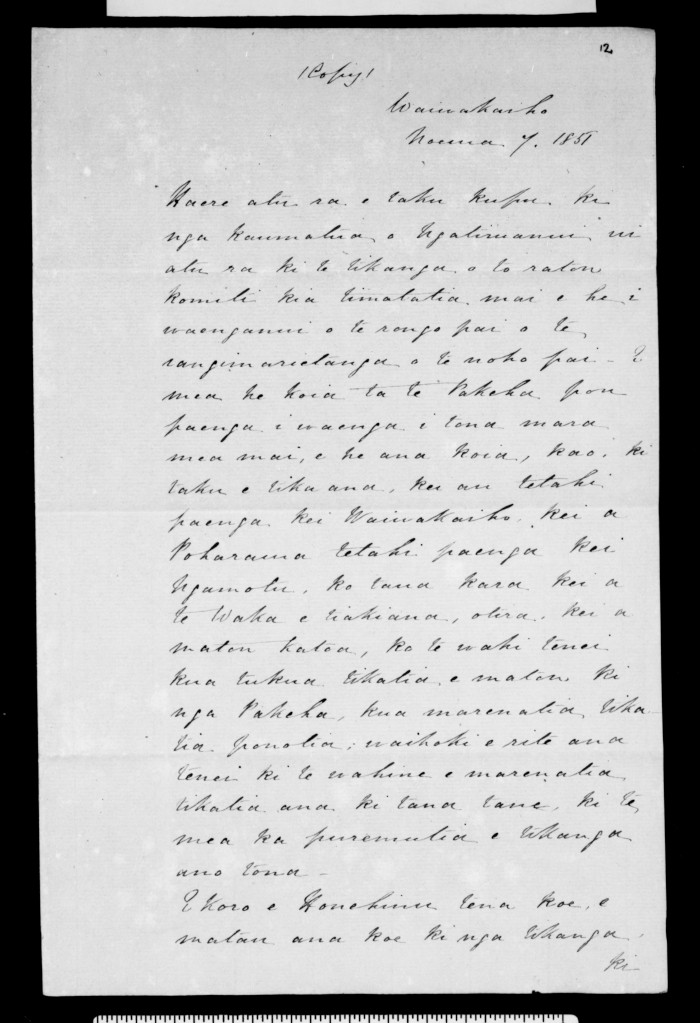 12
(Copy)
Waiwakaiho
Noema 7. 1851
Haere atu ra e taku kupu ki
nga Kaumatua o Ngatimaniui ui
atu ra ki te tikanga o to ratou
Komiti kia timatatia mai e he i
waenganui o te rongo pai o te
rangimarietanga o te noho pai - E
mea he koia ta te Pakeha pou
paenga i waenga i tona mara
mea mai, e he ana koia, kao, ki
taku e tika ana, kei au tetahi
paenga kei Waiwakaiho, kei a
Poharama tetahi paenga kei
Ngamotu, ko tana kara kei a
te Waka e tiakiana, otira, kei a
matou katoa, ko te wahi tenei
kua tukua tikatia e matou ki
nga Pakeha, kua marenatia tika
tia ponotia; waihoki e rite ana
tenei ki te wahine e marenatia
tikatia ana ki tana tane, ki te
mea ka puremutia e tikanga
ano tona -
E Koro e Honehinu tena koe, e
matau ana koe ki nga tikanga
ki